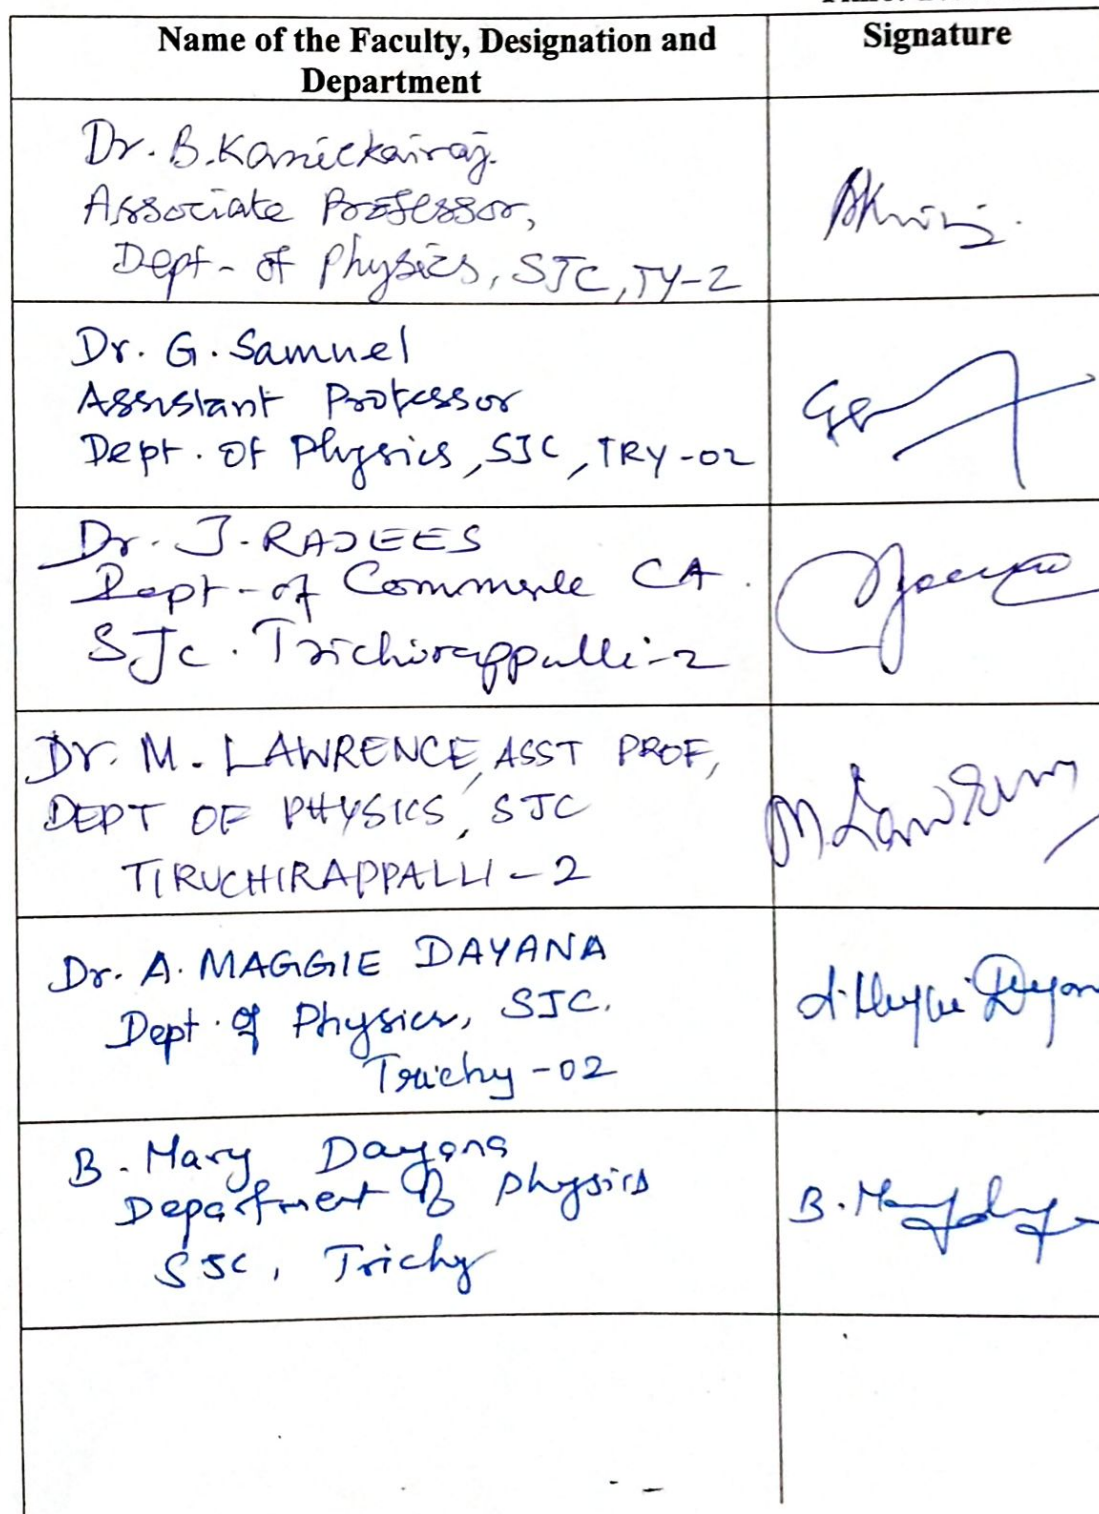 Name of the Faculty, Designation and
Department
Signature
Dr. B. Kanickairaj.
Associate Professor,
Dept - of Physics, SJC, TY-2
Dr. G. Samuel
Assistant Professor
Dept. of Physics, SJC, TRY-02
Dr. J. RAJEES
Dept - of Commerce CA.
SJC. Trichirappalli-2
Dr. M. LAWRENCE, ASST PROF,
DEPT OF PHYSICS, SJC
TIRUCHIRAPPALLI - 2
M. Lawrence
Dr. A. MAGGIE DAYANA
Dept. of Physics, SJC.
Trichy - 02
B. Mary Dayana
Department of physics
SJC, Trichy